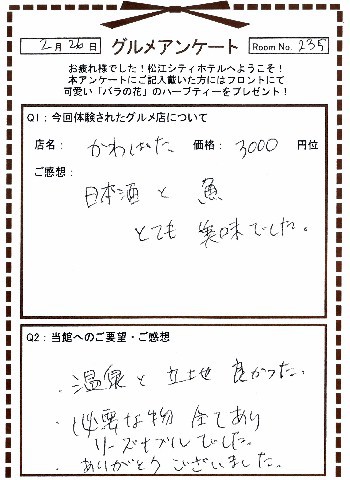 2月26日 グルメアンケート Room No. 235
お疲れ様でした!松江シティホテルへようこそ!
本アンケートにご記入戴いた方にはフロントにて
可愛い「バラの花」のハーブティーをプレゼント!
Q1:今回体験されたグルメ店について
店名: かわばた 価格: 3000 円位
ご感想:
日本酒と魚
とても美味でした。
Q2:当館へのご要望・ご感想
・温泉と立地良かった。
・必要な物全てあり
リーズナブルでした。
・ありがとうございました。